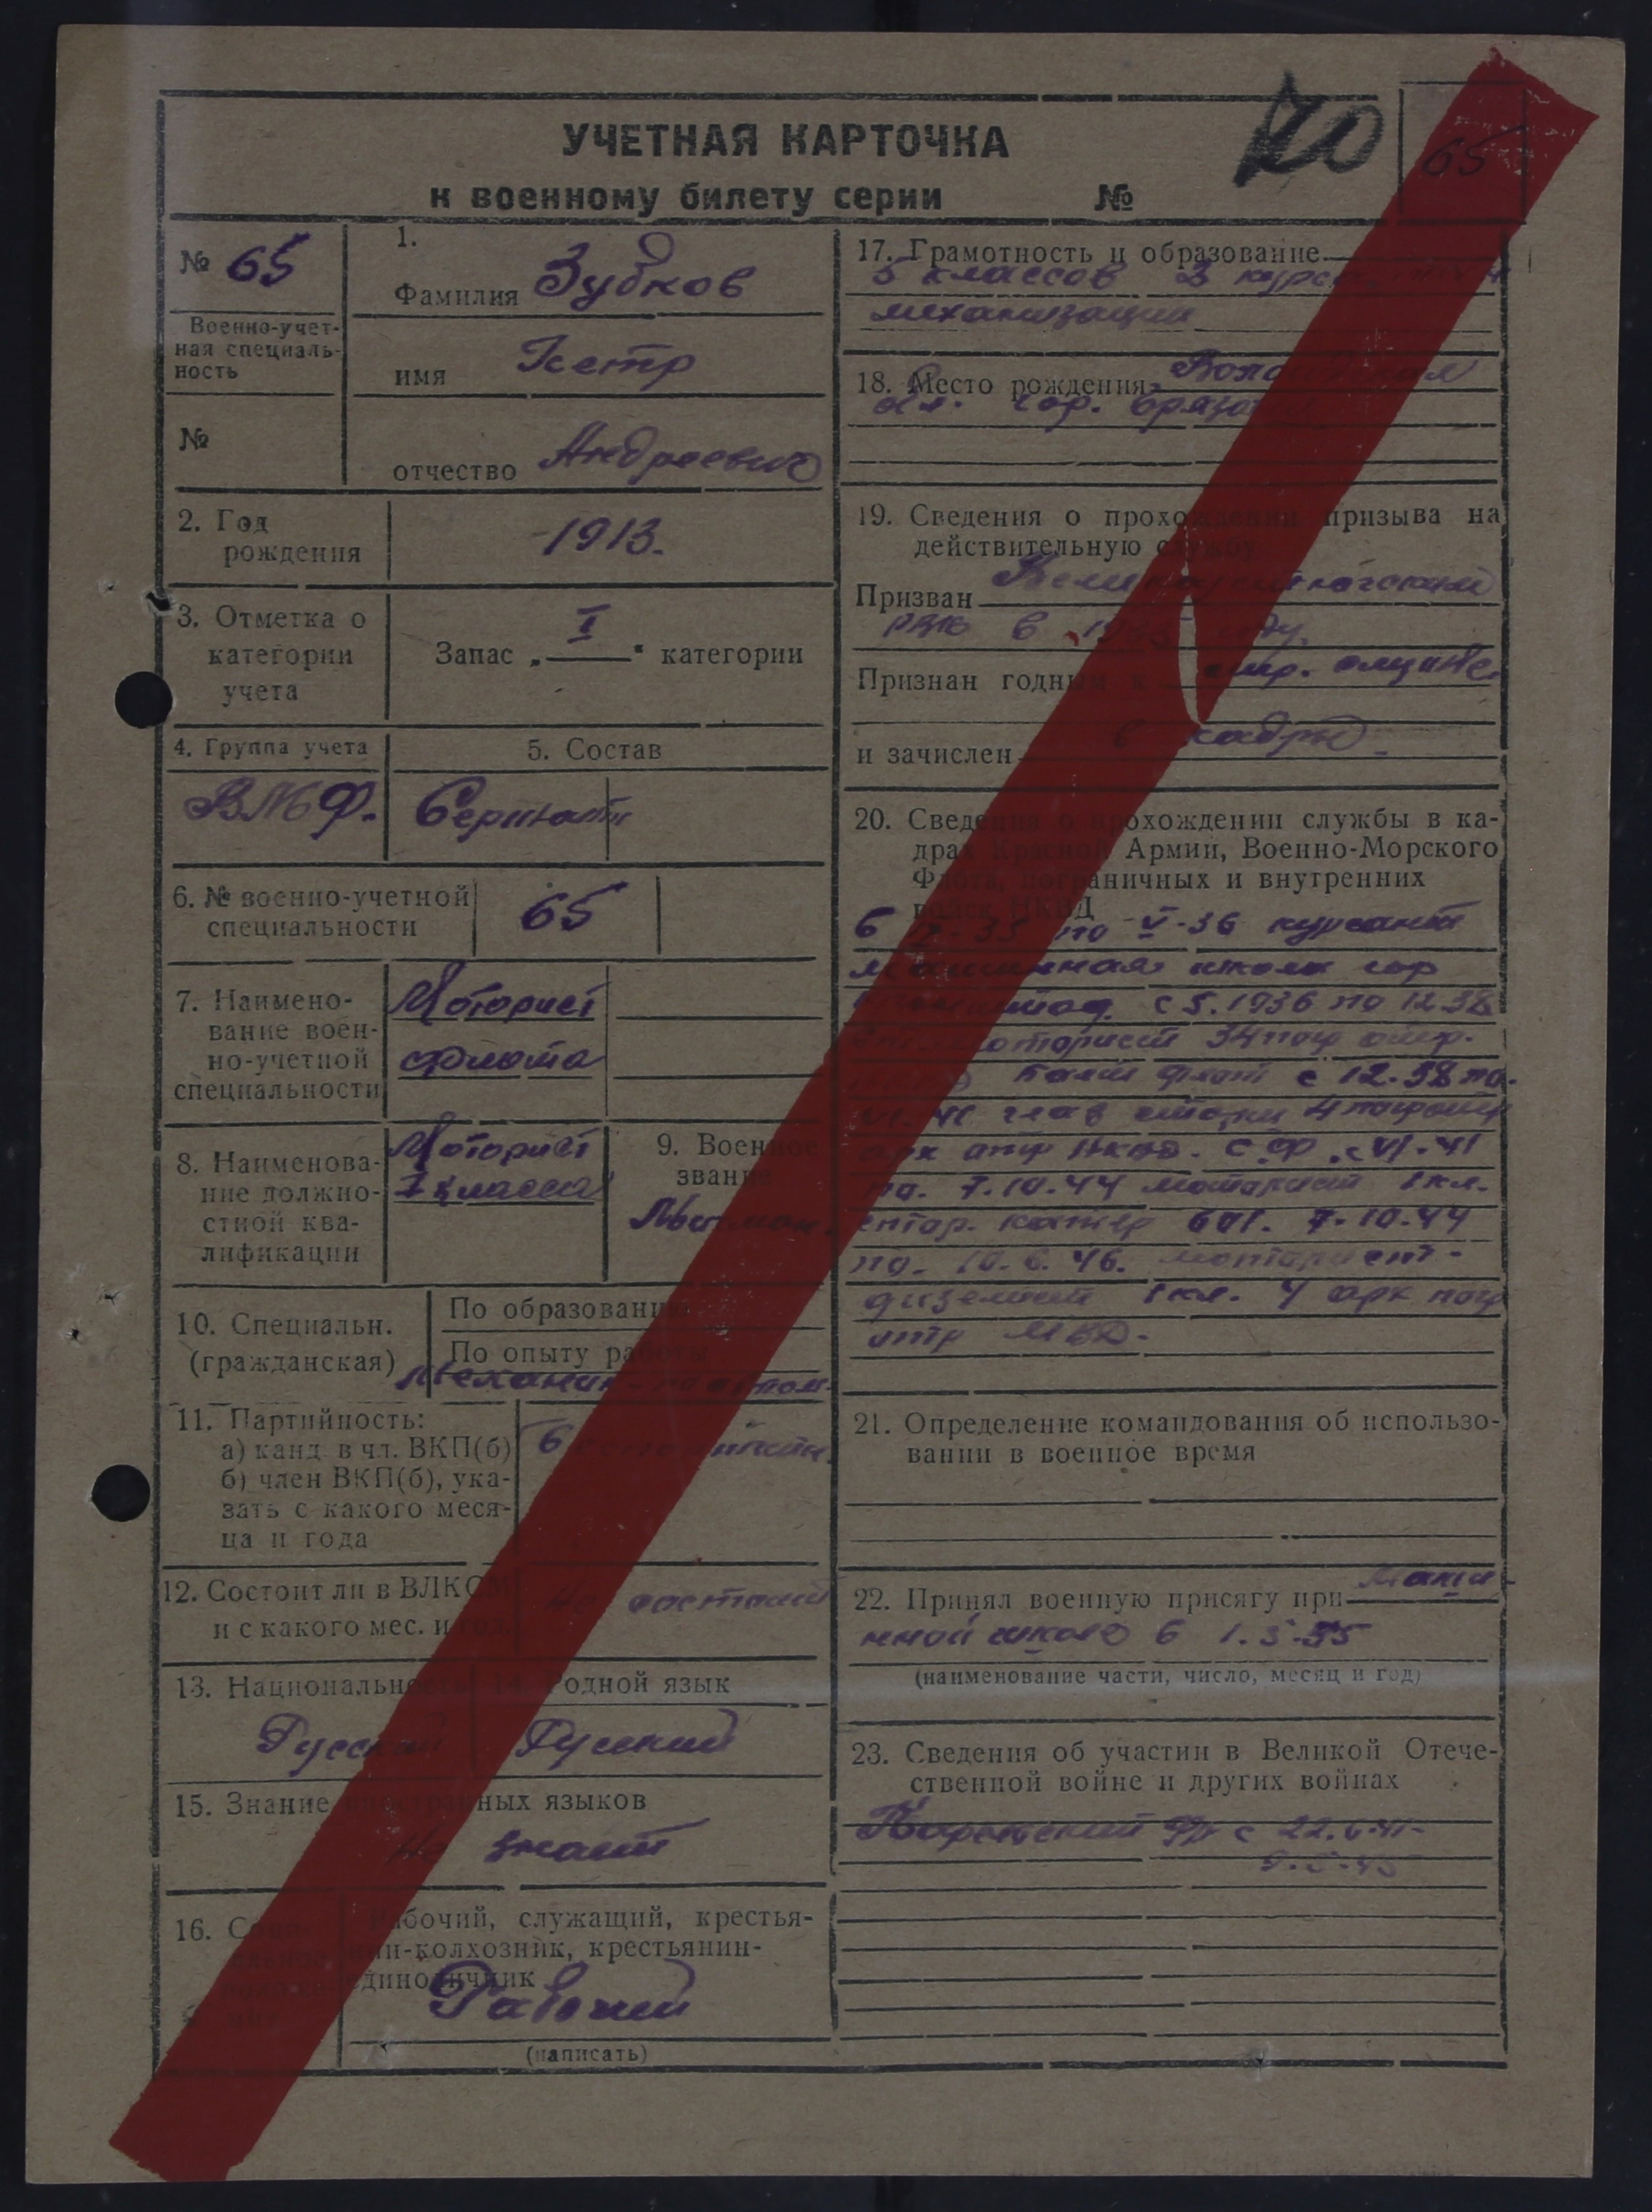 УЧЕТНАЯ КАРТОЧКА
к военному билету серии №
20
65
№ 65
Военно-учет-
ная специаль-
ность
№
1.
Фамилия Зубков
имя Петр
отчество Андреевич
2. Год
рождения
1913.
3. Отметка о
категории
учета
Запас „ I " категории
4. Группа учета
ВМФ.
5. Состав
Сержант
6. № военно-учетной
специальности
65
7. Наимено-
вание воен-
но-учетной
специальности
Моторист
флота
8. Наименова-
ние должно-
стной ква-
лификации
Моторист
I класса
9. Военное
звание
10. Специальн.
(гражданская)
По образованию
По опыту работы
Механик
11. Партийность:
а) канд. в чл. ВКП(б)
б) член ВКП(б), ука-
зать с какого меся-
ца и года
12. Состоит ли в ВЛКСМ
и с какого мес. и год.
Не состоит
13. Национальность
Русский
14. Родной язык
Русский
15. Знание иностранных языков
Не знает
16. Социальное
Рабочий, служащий, крестья-
нин-колхозник, крестьянин-
единоличник
Рабочий
(написать)
17. Грамотность и образование
5 классов 3 курса
механизации
18. Место рождения
обл. гор.
19. Сведения о прохождении призыва на
действительную службу
Призван Великоустюгский
РВК в году.
Признан годным к стр. службе
и зачислен в кадры.
20. Сведения о прохождении службы в ка-
драх Красной Армии, Военно-Морского
Флота, пограничных и внутренних
войск НКВД
по V-36 курсант
школа гор
с 5.1936 по 12.38
моторист
Балт флот с 12.38 по
4
НКВД. С.Ф. с VI-41
по. 7.10.44 моторист I кл.
катер 601. 7.10.44
по. 10.6.46. моторист-
дизелист I кл. 4 арк погр
отр МВД.
21. Определение командования об использо-
вании в военное время
22. Принял военную присягу при Маши-
нной школе в
(наименование части, число, месяц и год)
23. Сведения об участии в Великой Отече-
ственной войне и других войнах
Карельский фр с 22.6.41-
9.5.45